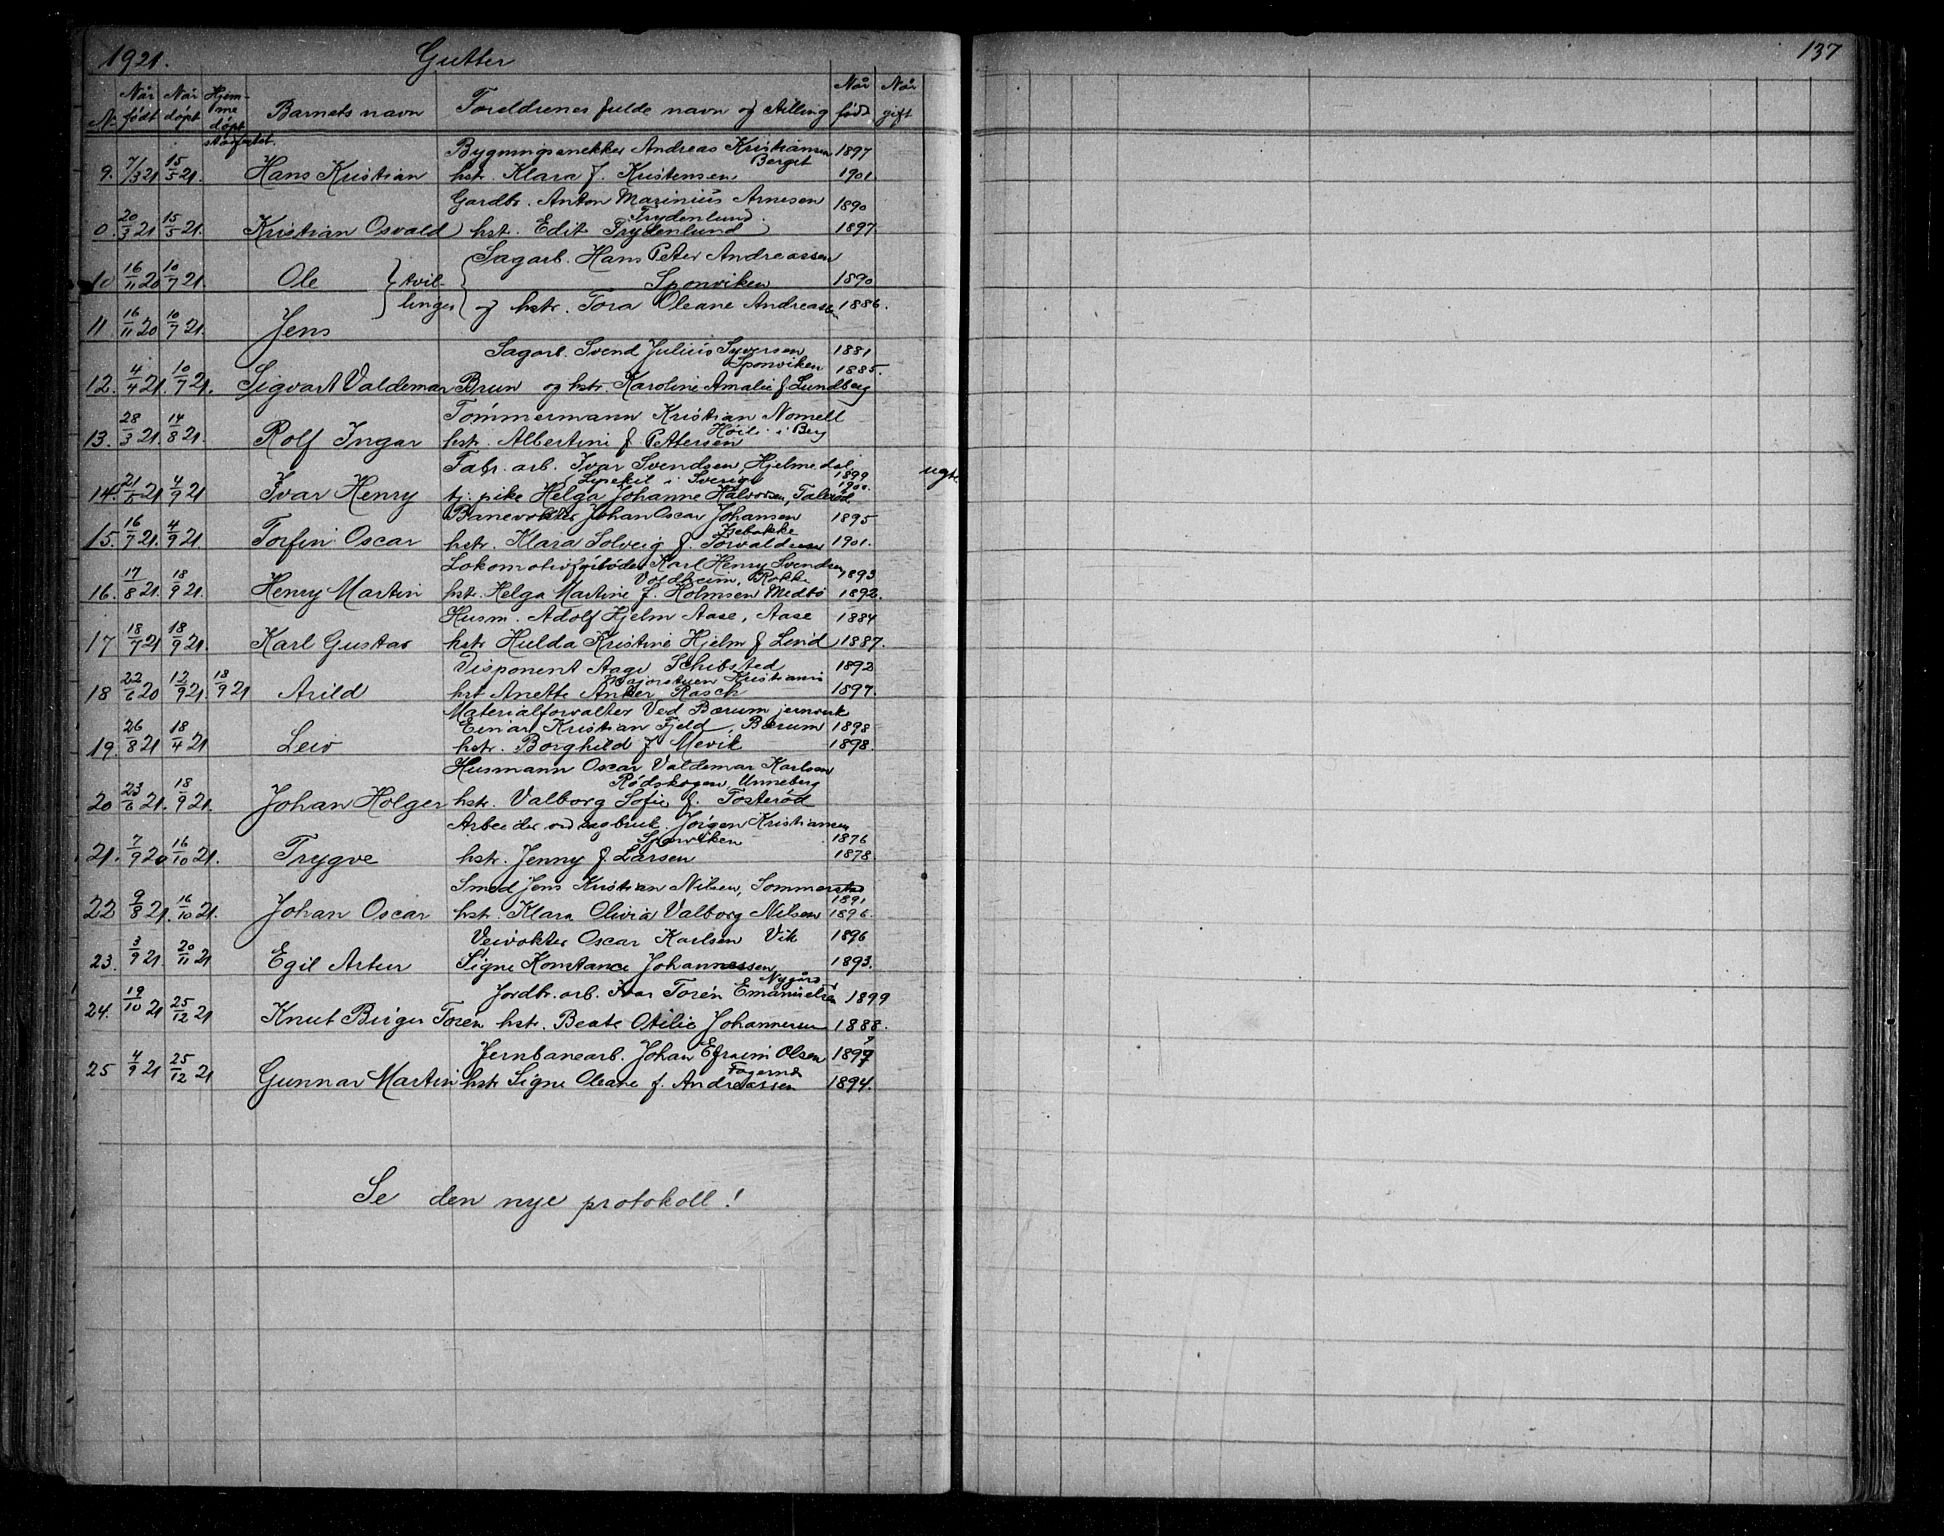 1921. Gutter 137
No Når født Når døpt Hjemmedøpt stadfæstet. Barnets navn Foreldrenes fulde navn og stilling Når født Når gift
Bygningssnekker Andreas Kristiansen 1897
Berget
9. 7/3 21 15/5 21. Hans Kristian hstr. Klara f. Kristensen 1901
Gardbr. Anton Marinius Arnesen 1890
Trydenlund.
0. 20/3 21 15/5 21. Kristian Osvald hst. Edit Trydenlund 1897
Sagarb. Hans Peter Andreassen
10 16/11 20 10/7 21. Ole } tvil- { Sponviken 1890
linger og hstr. Tora Oleane Andreassen 1886.
11 16/11 20 10/7 21. Jens
Sagarb. Svend Julius Syversen 1881
Sponviken 1885.
12. 4/4 21. 10/7 21. Sigvart Valdemar Brun og hstr. Karoline Amalie f. Lundberg
Tømmermann Kristian Nomell
Høili i Berg
13. 28/3 21. 14/8 21. Rolf Ingar hstr. Albertine f. Pettersen
Fabr. arb. Ivar Svendsen, Hjelmedal
Lysekil i Sverige 1899 ugt.
1900.
14. 21 4/9 21 Ivar Henry tj. pike Helga Johanne Halvorsen,
Banevokter Johan Oscar Johansen 1895
15. 16/7 21. 4/9 21. Torfin Oscar hstr. Klara Solveig f. Torvaldsen 1901.
Lokomotivfyrbøder Karl Henry Svendsen
Voldheim, Rokke 1893
16. 17/8 21. 18/9 21. Henry Martin hst. Helga Martine f. Holmsen Medbø 1892.
Husm. Adolf Hjelm Aase, Aase 1884
17 18/7 21 18/9 21. Karl Gustav hstr Hulda Kristine Hjelm f. Lind 1887.
Disponent Aage Schibsted 1892
Majorstuen Kristiania
18 22/6 20 12/9 21. 18/9 21 Arild hst Anette Anker Rasch 1897.
Materialforvalter Ved Bærum jernverk
Einar Kristian Fjeld, Bærum 1898
19. 26/8 21 18/4 21 Leiv hstr. Borghild f Mevik 1898.
Husmann Oscar Valdemar Karlsen
Rødskogen, Unneberg
20 23/6 21. 18/9 21. Johan Holger hstr. Valborg Sofie f. Tosterød
Arbeider ved sagbruk. Jørgen Kristiansen
Sponviken 1876
21. 7/9 20 16/10 21. Trygve hstr. Jenny f. Larsen 1878
Smed Jens Kristian Nilsen, Sommerstad
1891
22 9/8 21. 16/10 21. Johan Oscar hstr. Klara Olivia Valborg Nilsen 1896.
Veivokter Oscar Karlsen Vik 1896
23. 3/9 21. 20/11 21 Egil Artur Signe Konstance Johannessen 1893.
Nygård
Jordbr. arb. Ivar Torén Emanuelsen 1899
24. 19/10 21 25/12 21 Knut Birger Toren hstr. Beate Otilie Johannessen 1888.
Jernbanearb. Johan Efraim Olsen 1897
25 4/9 21 25/12 21 Gunnar Martin hstr Signe Oleane f. Andreassen 1894.
Se den nye protokoll!